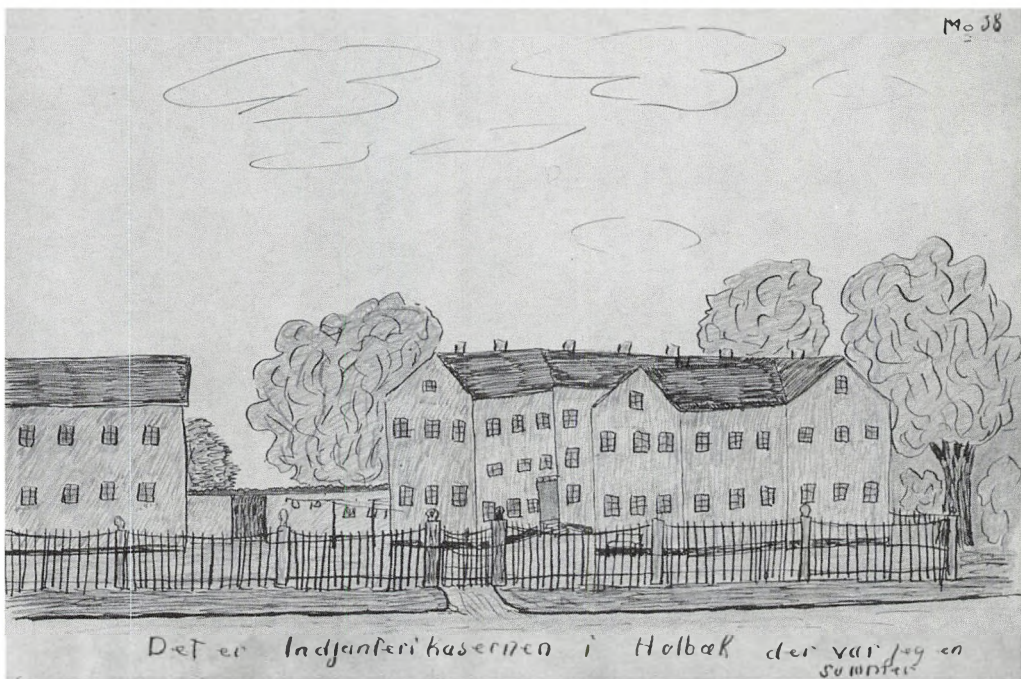 No 38
Det er Indjanterikasernen i Holbæk der var jeg en
summer